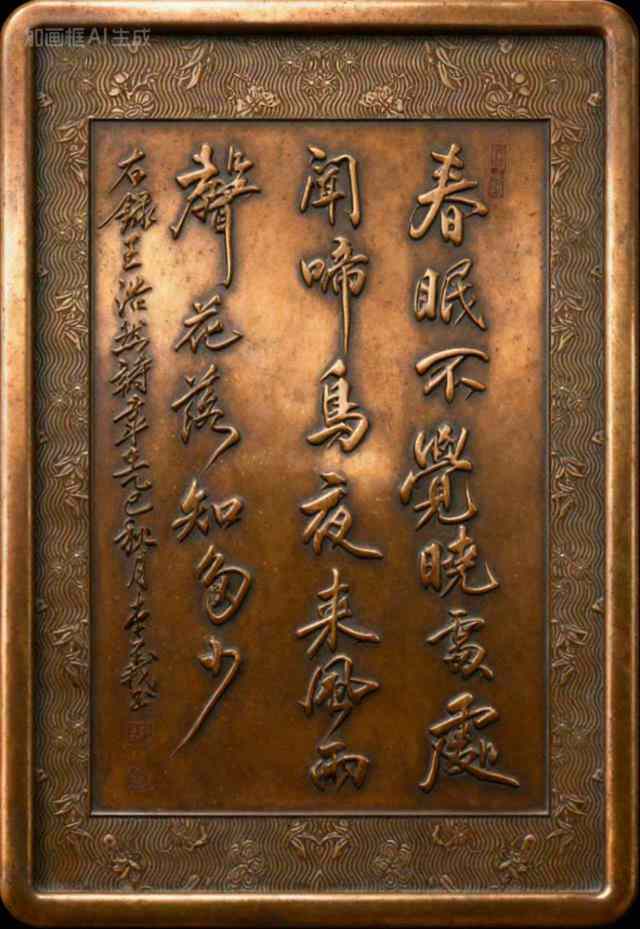 加画框AI生成
春眠不覺曉處處
聞啼鳥夜来風雨
聲花落知多少
右録王浩然詩巳秋月李義